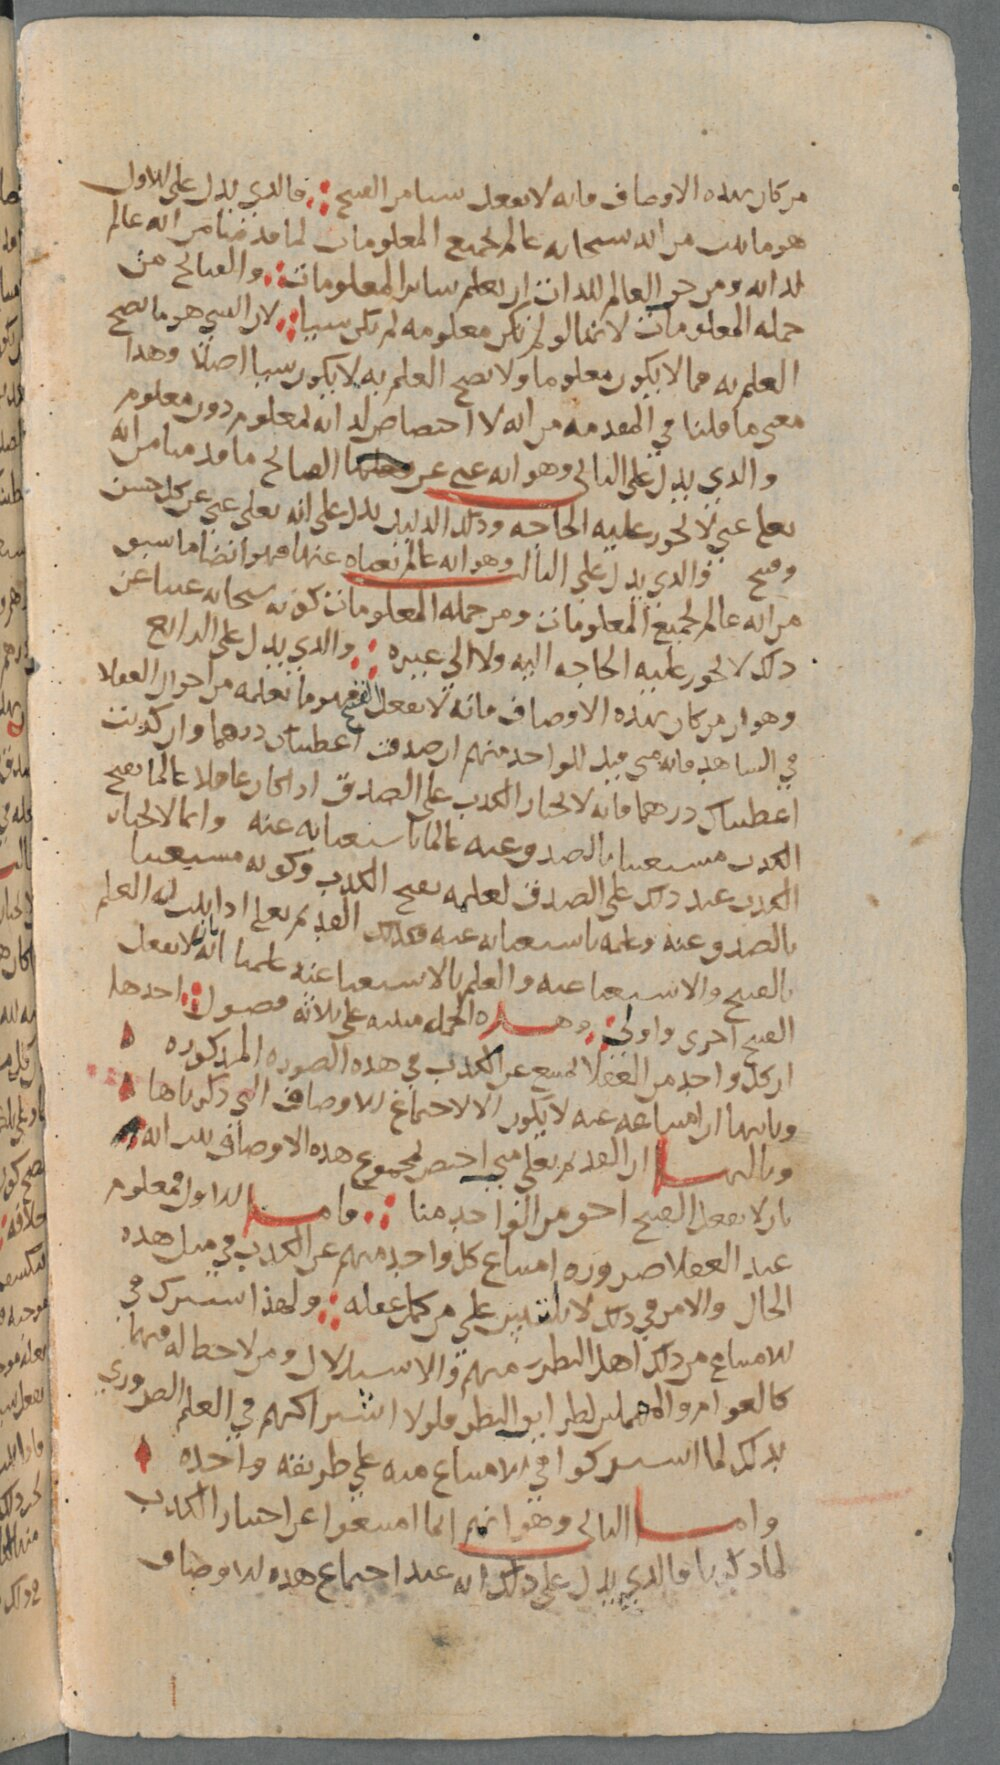 من كان بهذه الاوصاف فانه لا يفعل شيئا من القبيح ∴ فالذي يدل على الاول
هو ما ثبت من انه سبحانه عالم لجميع المعلومات لما قدمنا من انه عالم
لذاته ومن حق العالم للذات ان يعلم سائر المعلومات ∴ والقبائح من
جملة المعلومات لانها لو لم تكن معلومه لم تكن شيئا ∴ لان الشي هو ما يصح
العلم به فما لا يكون معلوما ولا يصح العلم به لا يكون شيئا اصلا وهذا
معنى ما قلنا في المقدمه من انه لا اختصاص لذاته لمعلوم دون معلوم
والذي يدل على الثاني وهو انه غني عن القبائح ما قدمنا من انه
تعلى غني لا تجوز عليه الحاجه وذلك الدليل يدل على انه تعلى غني عن كل حسن
وقبيح والذي يدل على الثالث وهو انه عالم بغناه عنها فهو ايضا ما سبق
من انه عالم لجميع المعلومات ومن جملة المعلومات كونه سبحانه غنيا عن
ذلك لا تجوز عليه الحاجه اليه ولا الى غيره ∴ والذي يدل على الرابع
وهو ان من كان بهذه الاوصاف فانه لا يفعل القبيح فهو ما نعلمه من احوال العقلا
في الشاهد فانه متى قيل للواحد منهم ان صدقت اعطيناك درهما وان كذبت
اعطيناك درهما فانه لا يختار الكذب على الصدق اذا كان عاقلا عالما بقبح
الكذب مستغنيا بالصدق عنه عالما باستغنائه عنه وانما لا يختار
الكذب عند ذلك على الصدق لعلمه بقبح الكذب وكونه مستغنيا
بالصدق عنه وعلمه باستغنائه عنه فكذلك القديم تعلى اذا ثبت له العلم
بالقبيح والاستغنا عنه والعلم بالاستغنا عنه علمنا انه بان لا يفعل
القبيح احرى واولى ∴ وهذه الجمله مبنيه على ثلاثه فصول ∴ احدها
ان كل واحد من العقلا يمتنع عن الكذب في هذه الصوره المذكوره
وثانيها ان امتناعه عنه لا يكون الا لاجتماع الاوصاف التي ذكرناها
وثالثها ان القديم تعلى متى اختص لمجموع هذه الاوصاف ثبت انه
بان لا يفعل القبيح احق من الواحد منا ∴ واما الاول فمعلوم
عند العقلا ضروره امتناع كل واحد منهم عن الكذب في مثل هذه
الحال والامر في ذلك لا يلتبس على من كمل عقله ∴ ولهذا اشترك في
الامتناع من ذلك اهل النظر منهم والاستدلال ومن لا حظ له فيهما
كالعوام والمهملين لطرايق النظر فلولا اشتراكهم في العلم الضروري
بذلك لما اشتركوا في الامتناع منه على طريقه واحده
واما الثاني وهو انهم انما امتنعوا عن اختيار الكذب
لما ذكرنا فالذي يدل على ذلك انه عند اجتماع هذه الاوصاف